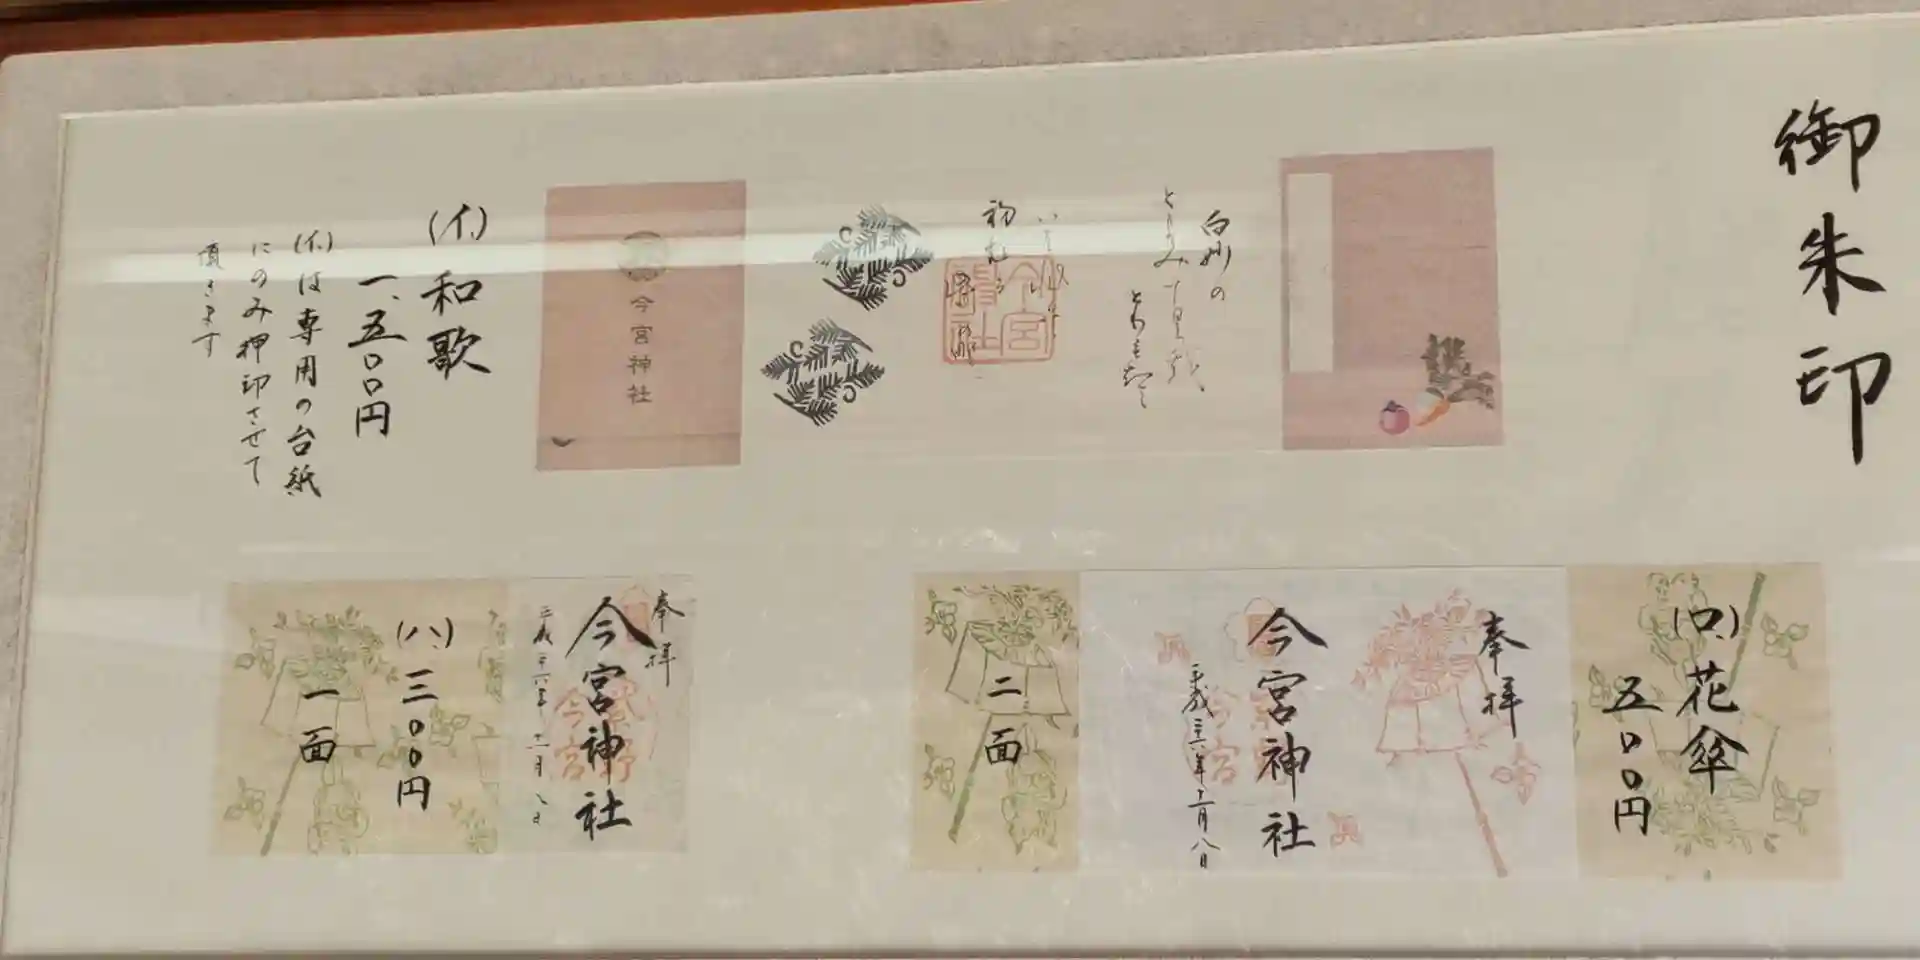 御朱印
白妙の
今宮神社
(イ)和歌
一、五〇〇円
(イ)は専用の台紙
にのみ押印させて
頂きます
(ロ)花傘
五〇〇円
奉拝
今宮神社
平成二十六年十一月八日
二面
奉拝
今宮神社
(ハ)三〇〇円
一面